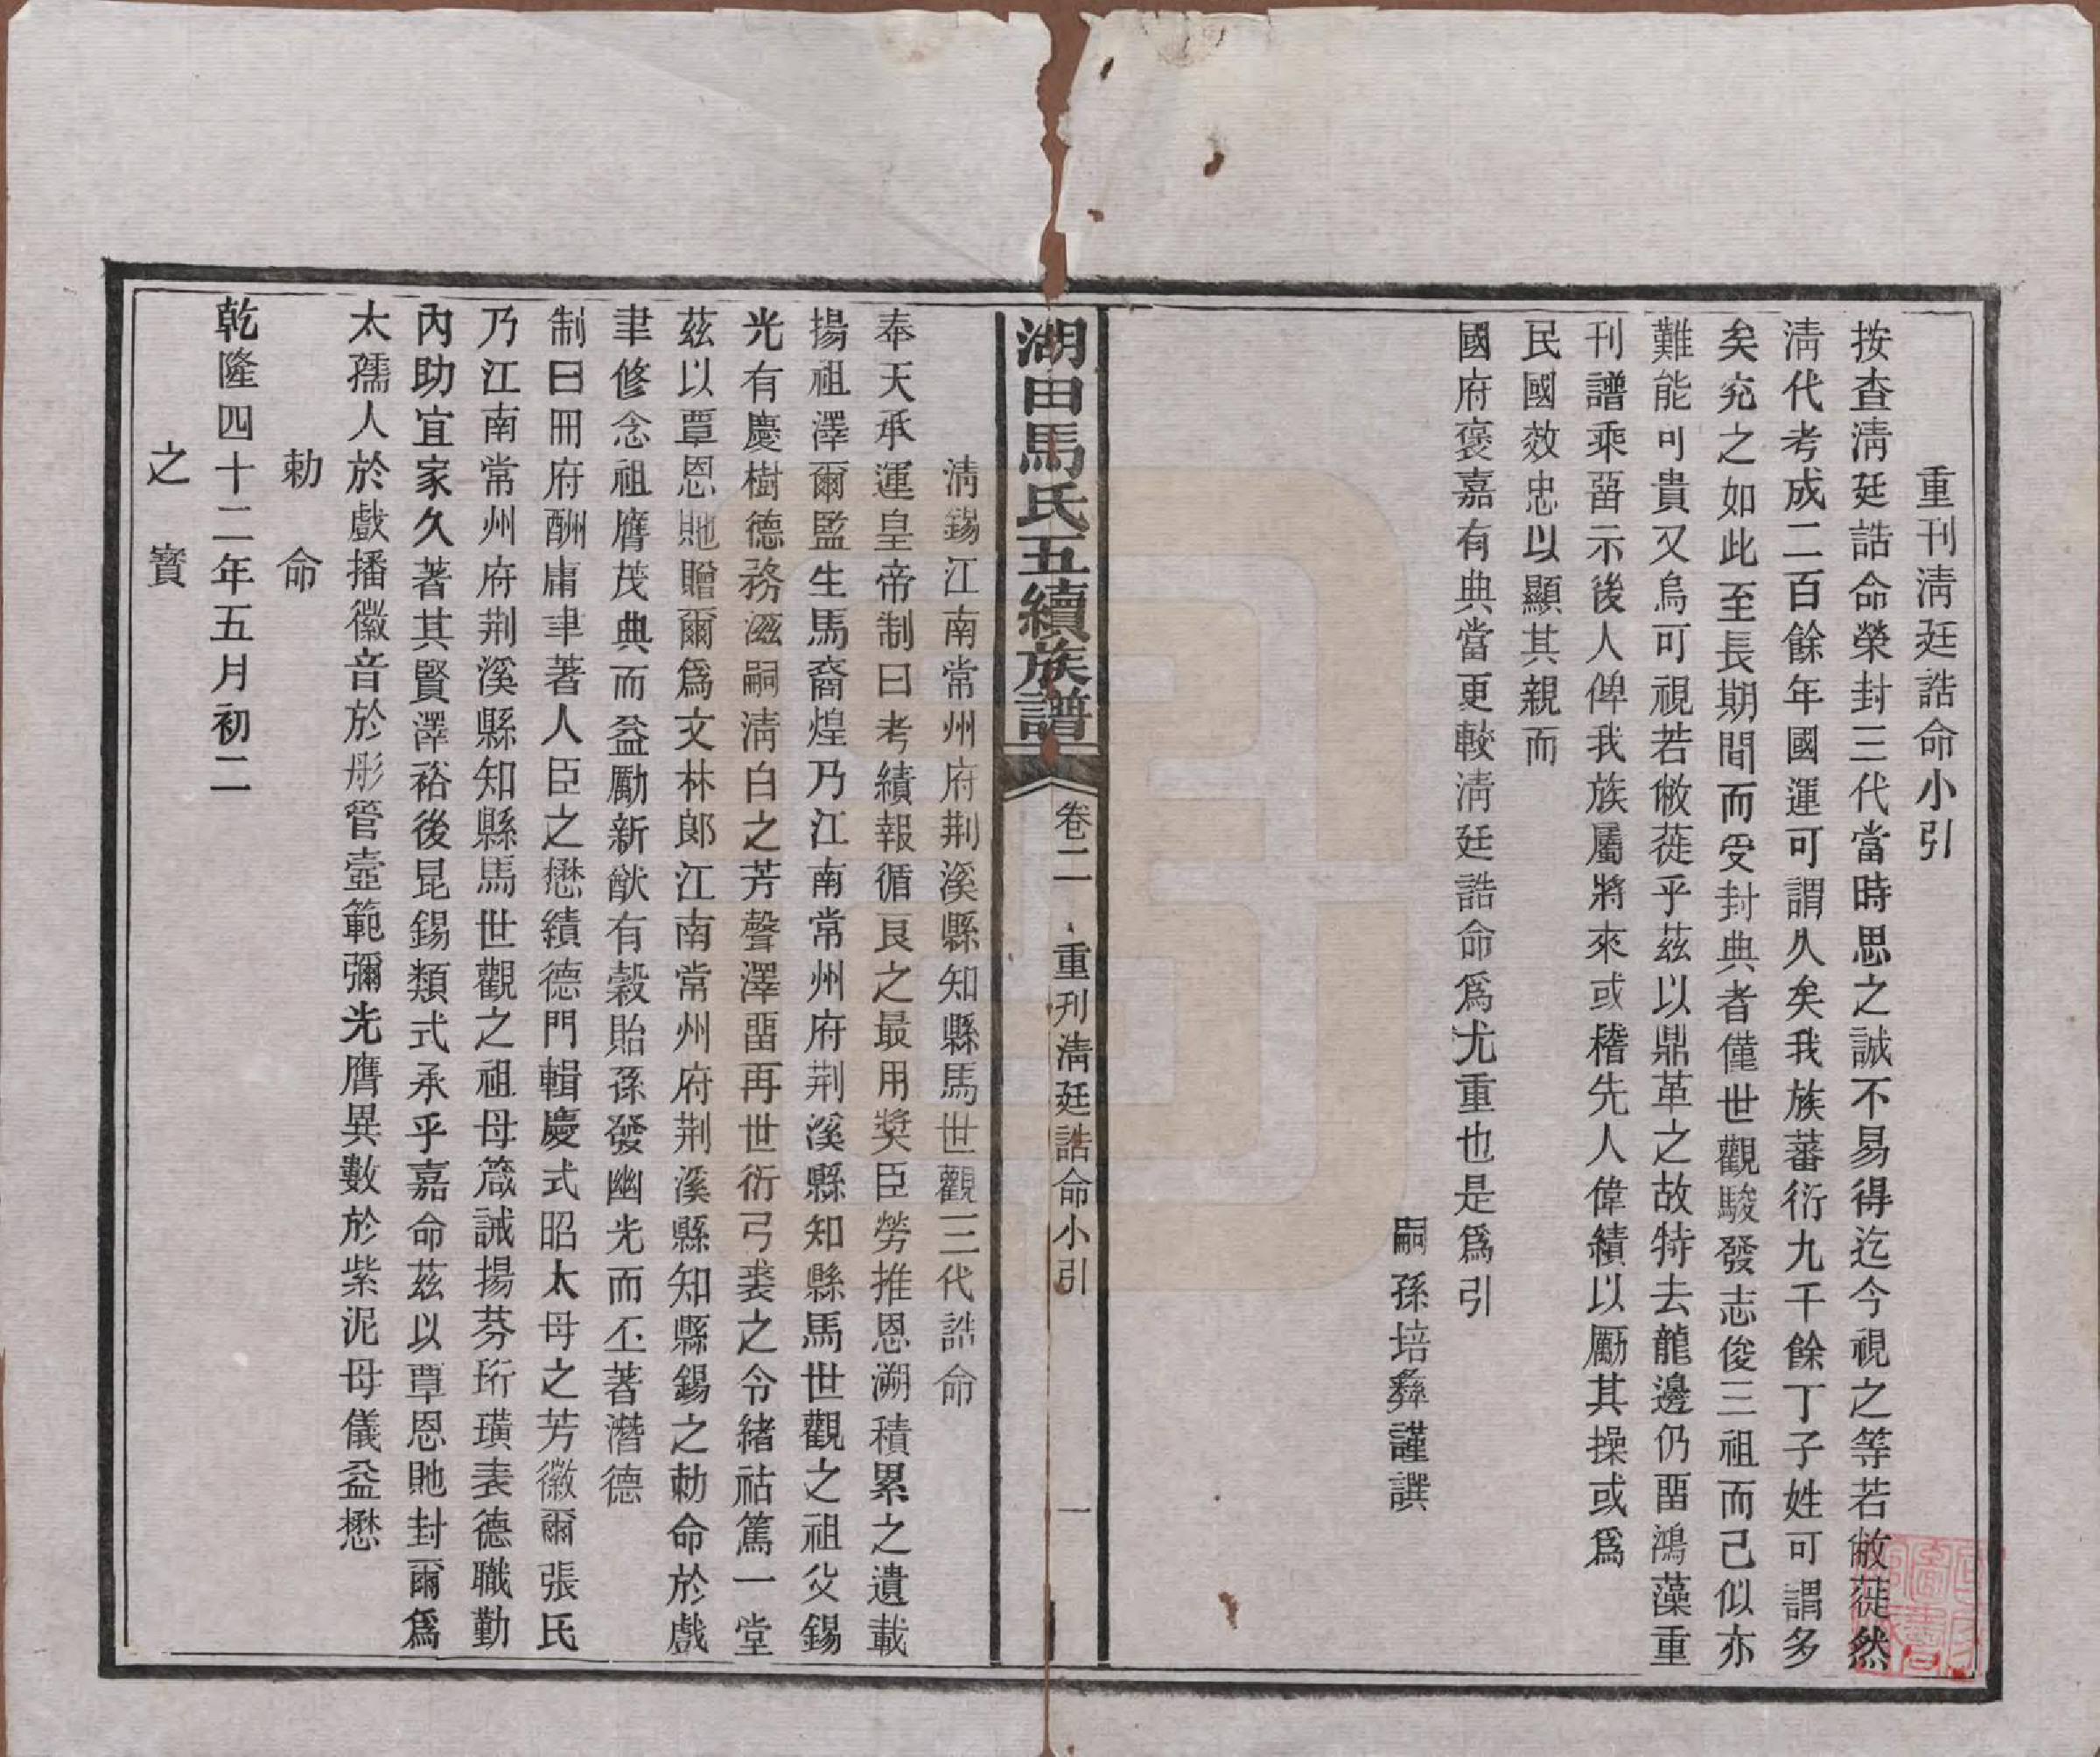 重刊淸廷誥命小引
按查淸廷誥命榮封三代當時思之誠不易得迄今視之等若敝蓰然
淸代考成二百餘年國運可謂久矣我族蕃衍九千餘丁子姓可謂多
矣究之如此至長期間而受封典者僅世觀駿發志俊三祖而己似亦
難能可貴又烏可視若敝蓰乎茲以鼎革之故特去龍邊仍畱鴻藻重
刊譜乘畱示後人俾我族屬將來或稽先人偉績以勵其操或爲
民國效忠以顯其親而
國府褒嘉有典當更較淸廷誥命爲尤重也是爲引
嗣孫培彝謹譔
湖田馬氏五續族譜
卷二
重刊淸廷誥命小引
一
淸錫江南常州府荆溪縣知縣馬世觀三代誥命
奉天承運皇帝制曰考績報循良之最用奬臣勞推恩溯積累之遺載
揚祖澤爾監生馬裔煌乃江南常州府荆溪縣知縣馬世觀之祖父錫
光有慶樹德務滋嗣淸白之芳聲澤畱再世衍弓裘之令緒祜篤一堂
茲以覃恩貤贈爾爲文林郎江南常州府荆溪縣知縣錫之勅命於戲
聿修念祖膺茂典而益勵新猷有穀貽孫發幽光而丕著潛德
制曰冊府酬庸聿著人臣之懋績德門輯慶式昭太母之芳徽爾張氏
乃江南常州府荆溪縣知縣馬世觀之祖母箴誡揚芬珩璜表德職勤
內助宜家久著其賢澤裕後昆錫類式承乎嘉命茲以覃恩貤封爾爲
太孺人於戲播徽音於彤管壼範彌光膺異數於紫泥母儀益懋
勅命
乾隆四十二年五月初二
之寳